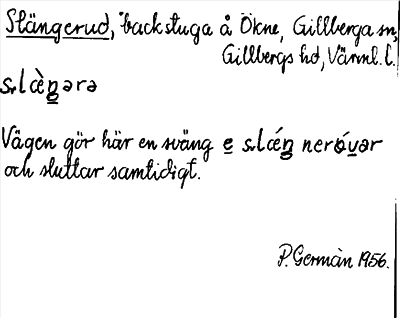 Slängerud, backstuga å Ökne, Gillberga sn,
Gillbergs hd, Värml. l.
slæ̀ŋərə
Vägen gör här en sväng e slǽŋ nerövər
och sluttar samtidigt.
P. Germàn 1956.